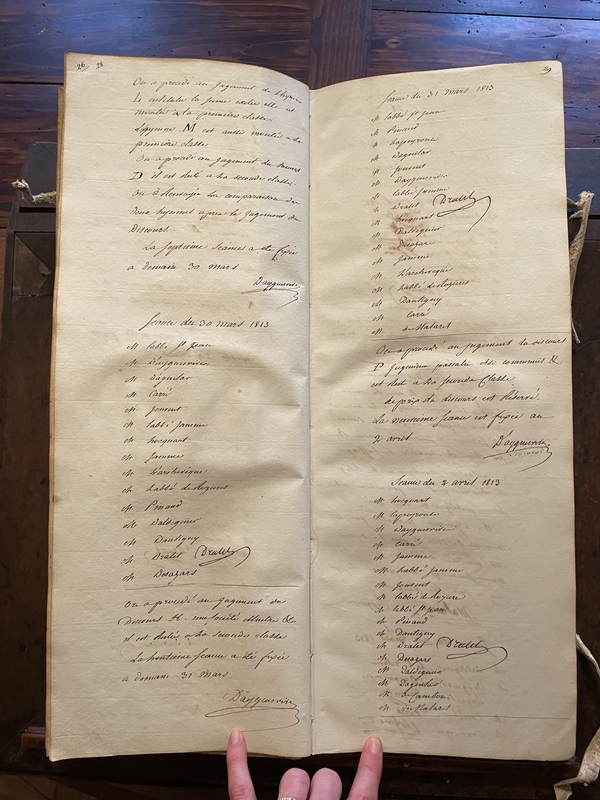 26 28
On a procedé au Jugement de l'hymne
la premiere classe
L'hymne M est aussi montée a la
premiere classe
On a procedé au Jugement du discours
D il est resté a la seconde classe.
on a Renvoyé la comparaison des
deux hymnes après le Jugement du
Discours
La septieme Seance a eté fixée
a demain 30 mars
D'ayguesvive
Seance du 30 mars 1813
M l'abbé St Jean
M D'ayguesvive
M Daguilar
M Carré
M Jouvent
M l'abbé Jamme
M hocquart
M Jamme
M L'archevêque
M l'abbé de Rozieres
M Pinaud
M Daldeguier
M Dantigny
M Dralet Dralet
M Desazars
On a procedé au Jugement du
Discours H. une societé &c
il est a la seconde classe
La huitieme Seance a eté fixée
a demain 31 mars
D'ayguesvive
29
Seance du 31 mars 1813
M l'abbé St Jean
M Pinaud
M Lapeyrouse
M Daguilar
M Jouvent
M Dayguesvive
M l'abbé Jamme
M Dralet Dralet
M hocquart
M Daldeguier
M Desazars
M Jamme
M L'archeveque
M l'abbé de Rozieres
M Dantigny
M Carré
M de Malaret
On a procedé au Jugement du discours
D &
est resté a la seconde Classe
le prix du discours est Réservé.
La neuvieme Seance est fixée au
2 avril
D'ayguesvive
Seance du 2 avril 1813
M hocquart
M Lapeyrouse
M Dayguesvive
M Carré
M Jamme
M l'abbé Jamme
M Jouvent
M l'abbé de Roziere
M l'abbé St Jean
M Pinaud
M Dantigny
M Dralet Dralet
M Desazars
M Daldeguier
M Daguilar
M de Cambon
M de Malaret